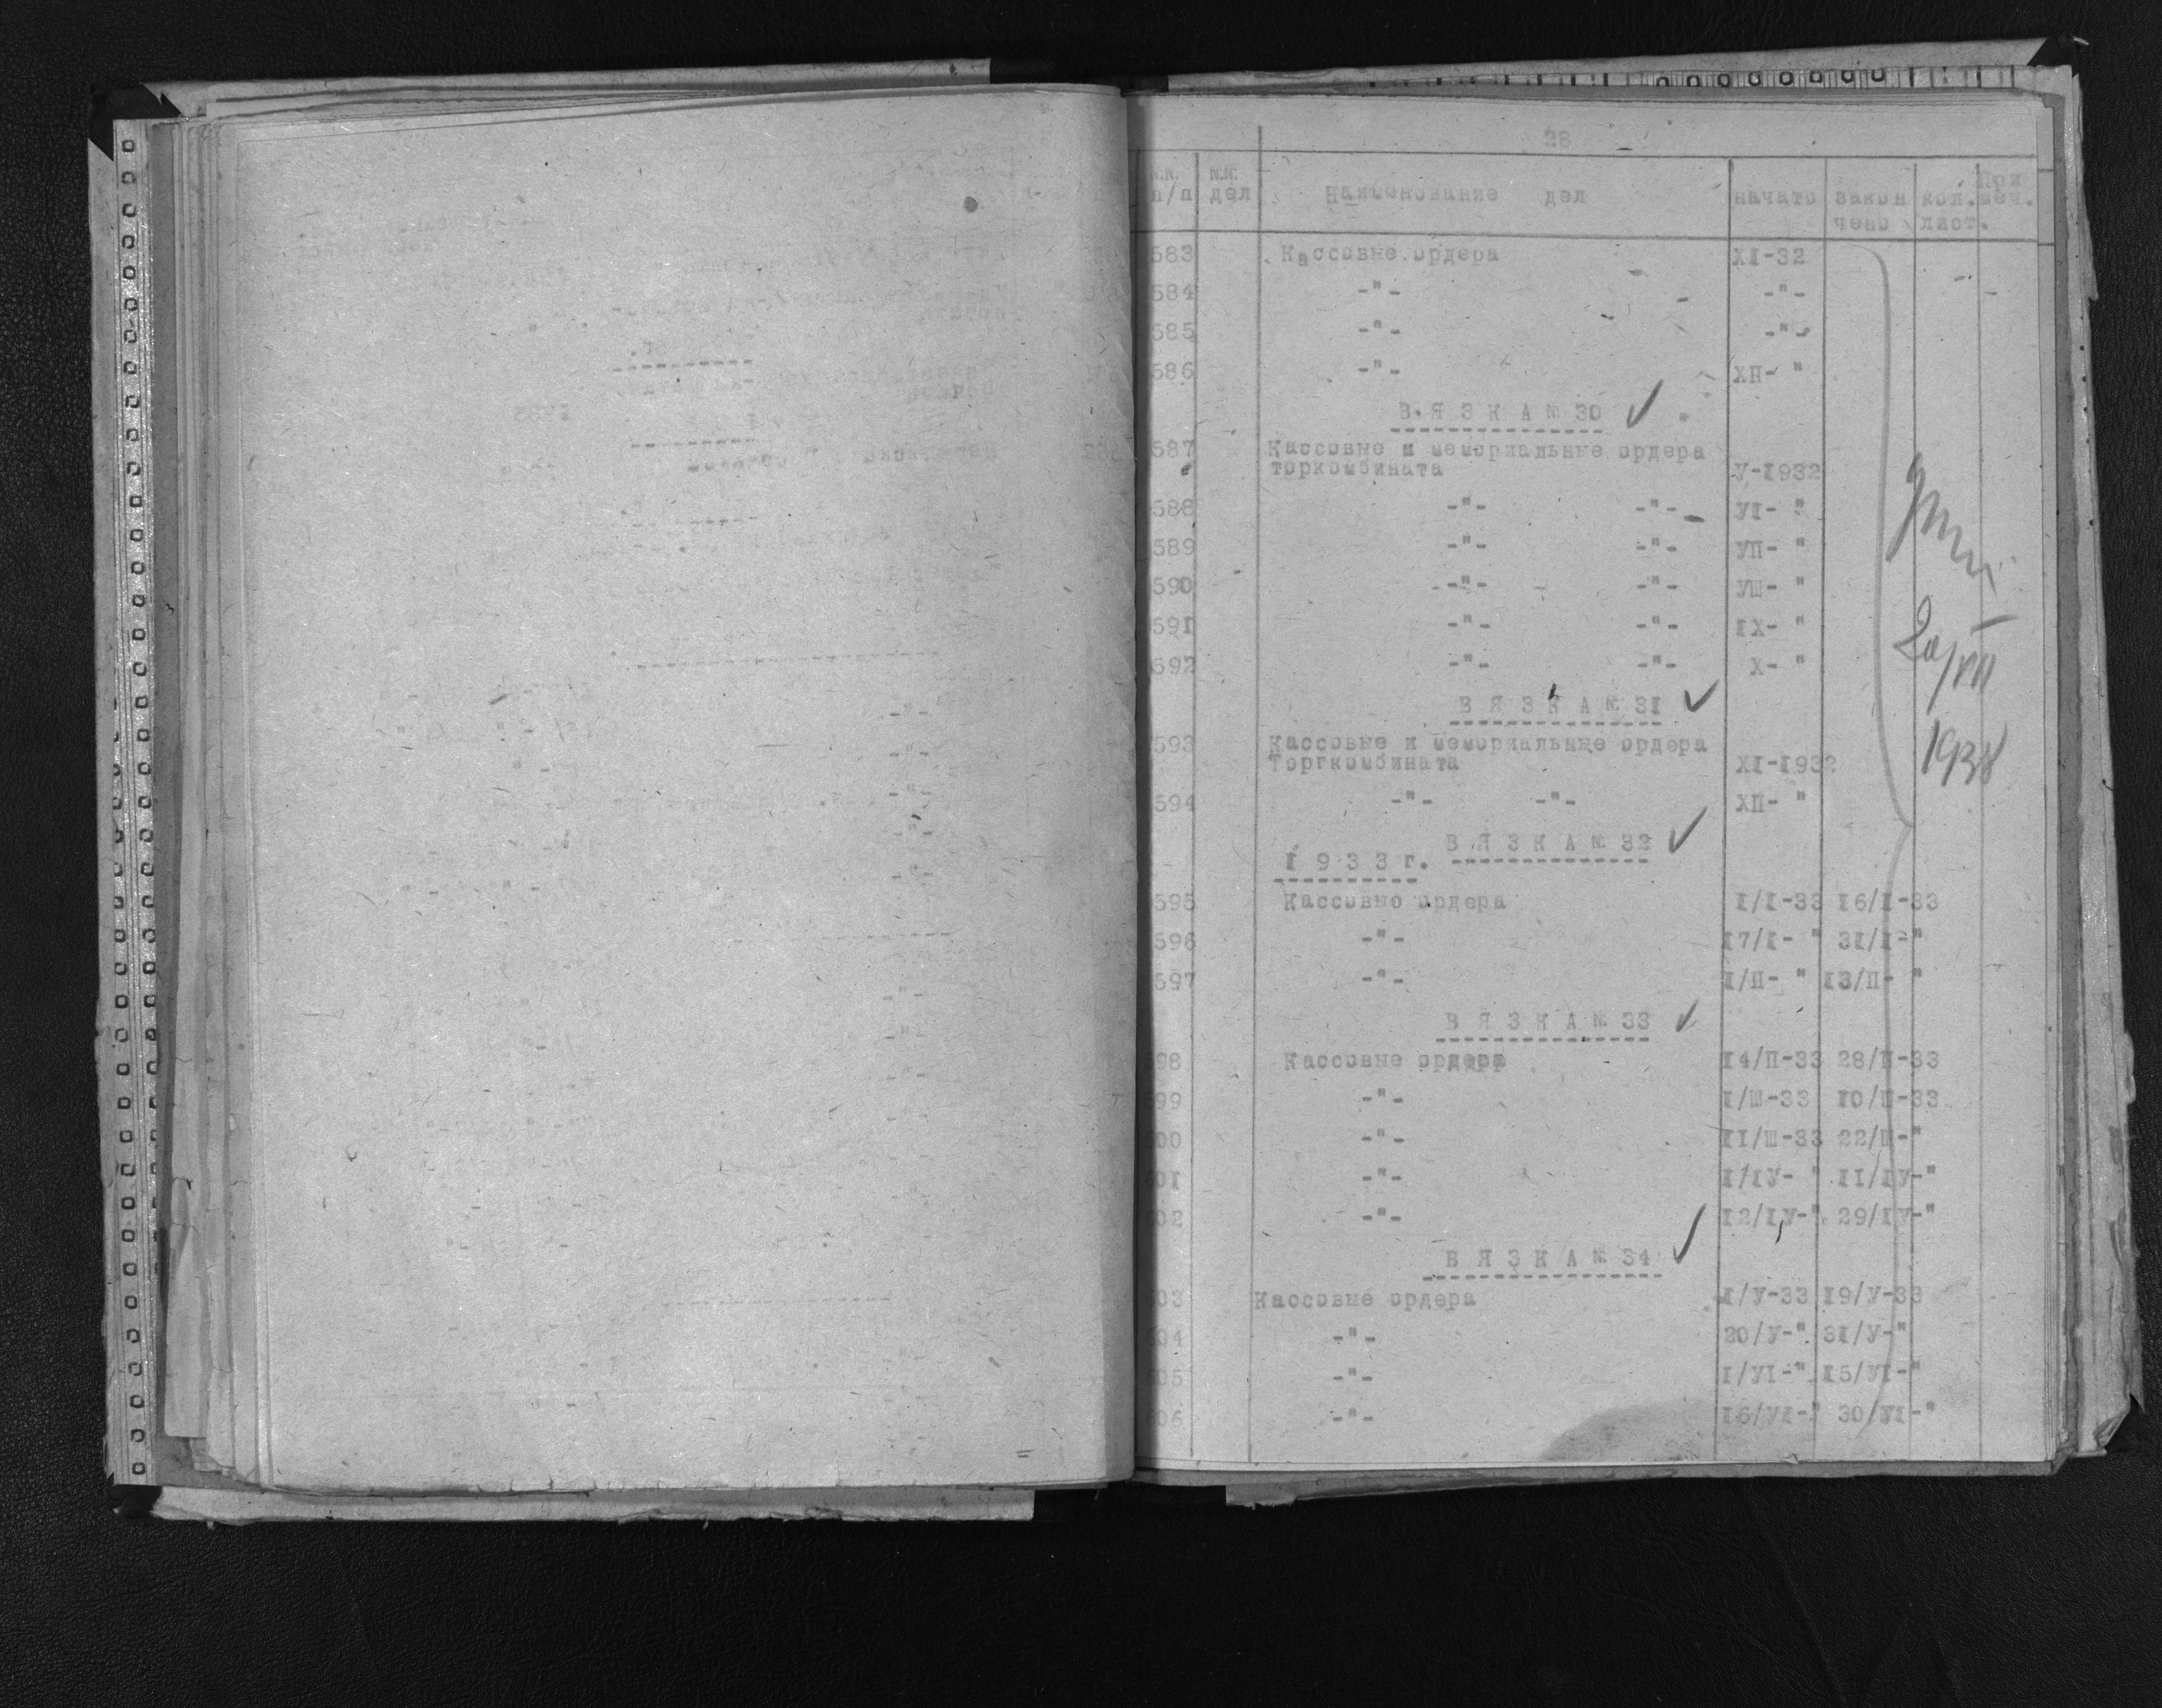 28
№№ №№ При
п/п дел Наименование дел начато закон кол. меч.
чено лист.
583 Кассовые ордера XI-32
584 -"- -"-
585 -"- -"-
586 -"- ХП- "
В Я З К А № 30
587 Кассовые и мемориальные ордера
торкомбината У-1932
588 -"- -"- УI- "
589 -"- -"- УП- "
590 -"- -"- УШ- "
591 -"- -"- IX- "
592 -"- -"- X- "
В Я З К А № 31
593 Кассовые и мемориальные ордера
Торгкомбината XI-1932
594 -"- -"- ХП- "
В Я З К А № 32
I 9 3 3 г.
595 Кассовые ордера I/I-33 I6/I-33
596 -"- I7/I- " 3I/I-"
597 -"- I/П- " I3/П- "
В Я З К А № 33
98 Кассовые ордера I4/П-33 28/П-33
99 -"- I/Ш-33 I0/Ш-33
00 -"- II/Ш-33 22/Ш-"
0I -"- I/IУ- " II/IУ-"
02 -"- I2/IУ-" 29/IУ-"
В Я З К А № 34
03 Кассовые ордера I/У-33 I9/У-33
04 -"- 20/У-" 3I/У-"
05 -"- I/УI-" I5/УI-"
06 -"- I6/УI-" 30/УI-"
20/VII
1938